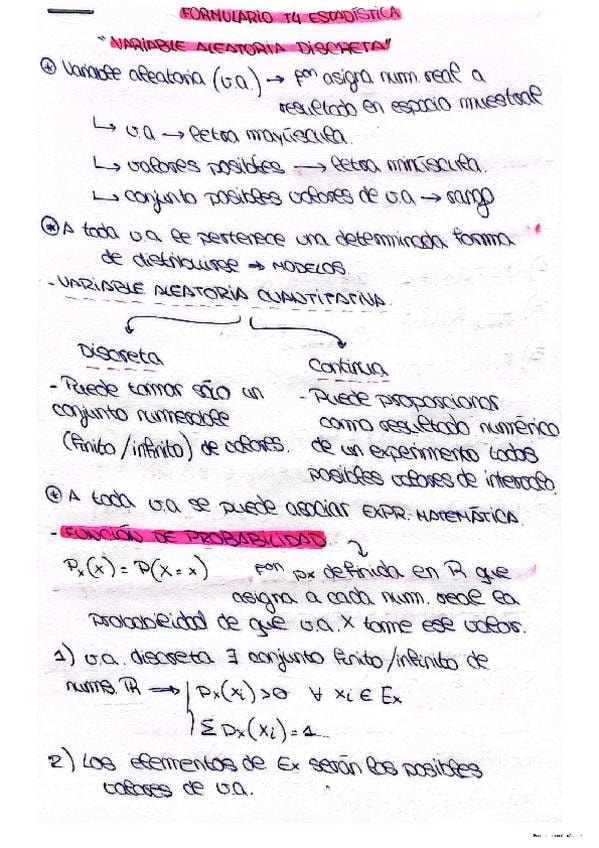 FORMULARIO T4 ESTADÍSTICA
"VARIABLE ALEATORIA DISCRETA"
* Variable aleatoria (v.a.) → fon asigna num. real a
resultado en espacio muestral
↳ v.a → letra mayúscula.
↳ valores posibles → letra minúscula.
↳ conjunto posibles valores de v.a → rango
* A toda v.a le pertenece una determinada forma
de distribuirse → MODELOS.
- VARIABLE ALEATORIA CUANTITATIVA.
Discreta
- Puede tomar sólo un
conjunto numerable
(finito/infinito) de valores.
Continua
- Puede proporcionar
como resultado numérico
de un experimento todos
posibles valores de intervalo.
* A toda v.a se puede asociar EXPR. MATEMÁTICA.
- FUNCIÓN DE PROBABILIDAD
Px(x) = P(X = x) fon px definida en R que
asigna a cada num. real la
probabilidad de que v.a. X tome ese valor.
1) v.a. discreta ∃ conjunto finito/infinito de
nums. R → px(xi) > 0 ∀ xi ∈ Ex
Σ px(xi) = 1
2) Los elementos de Ex serán los posibles
valores de v.a.